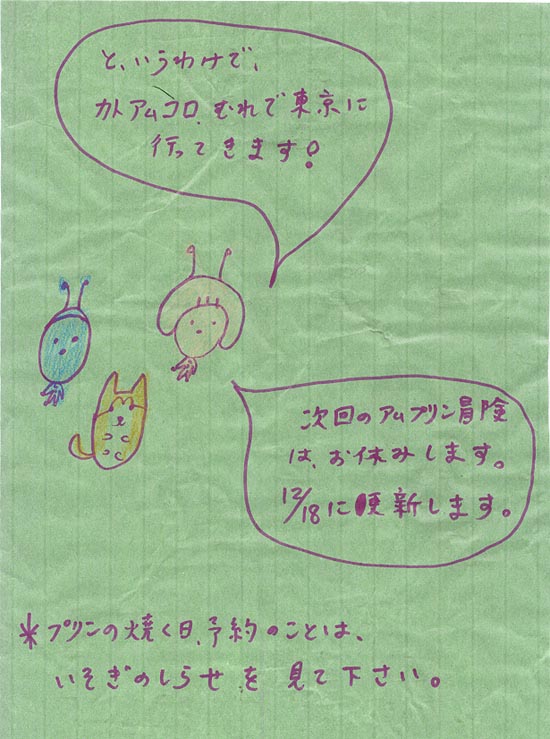 と、いうわけで、
カトアムコロ、むれで東京に
行ってきます!
次回のアムプリン冒険
は、お休みします。
12/18に更新します。
*プリンの焼く日、予約のことは、
いそぎのしらせを見て下さい。